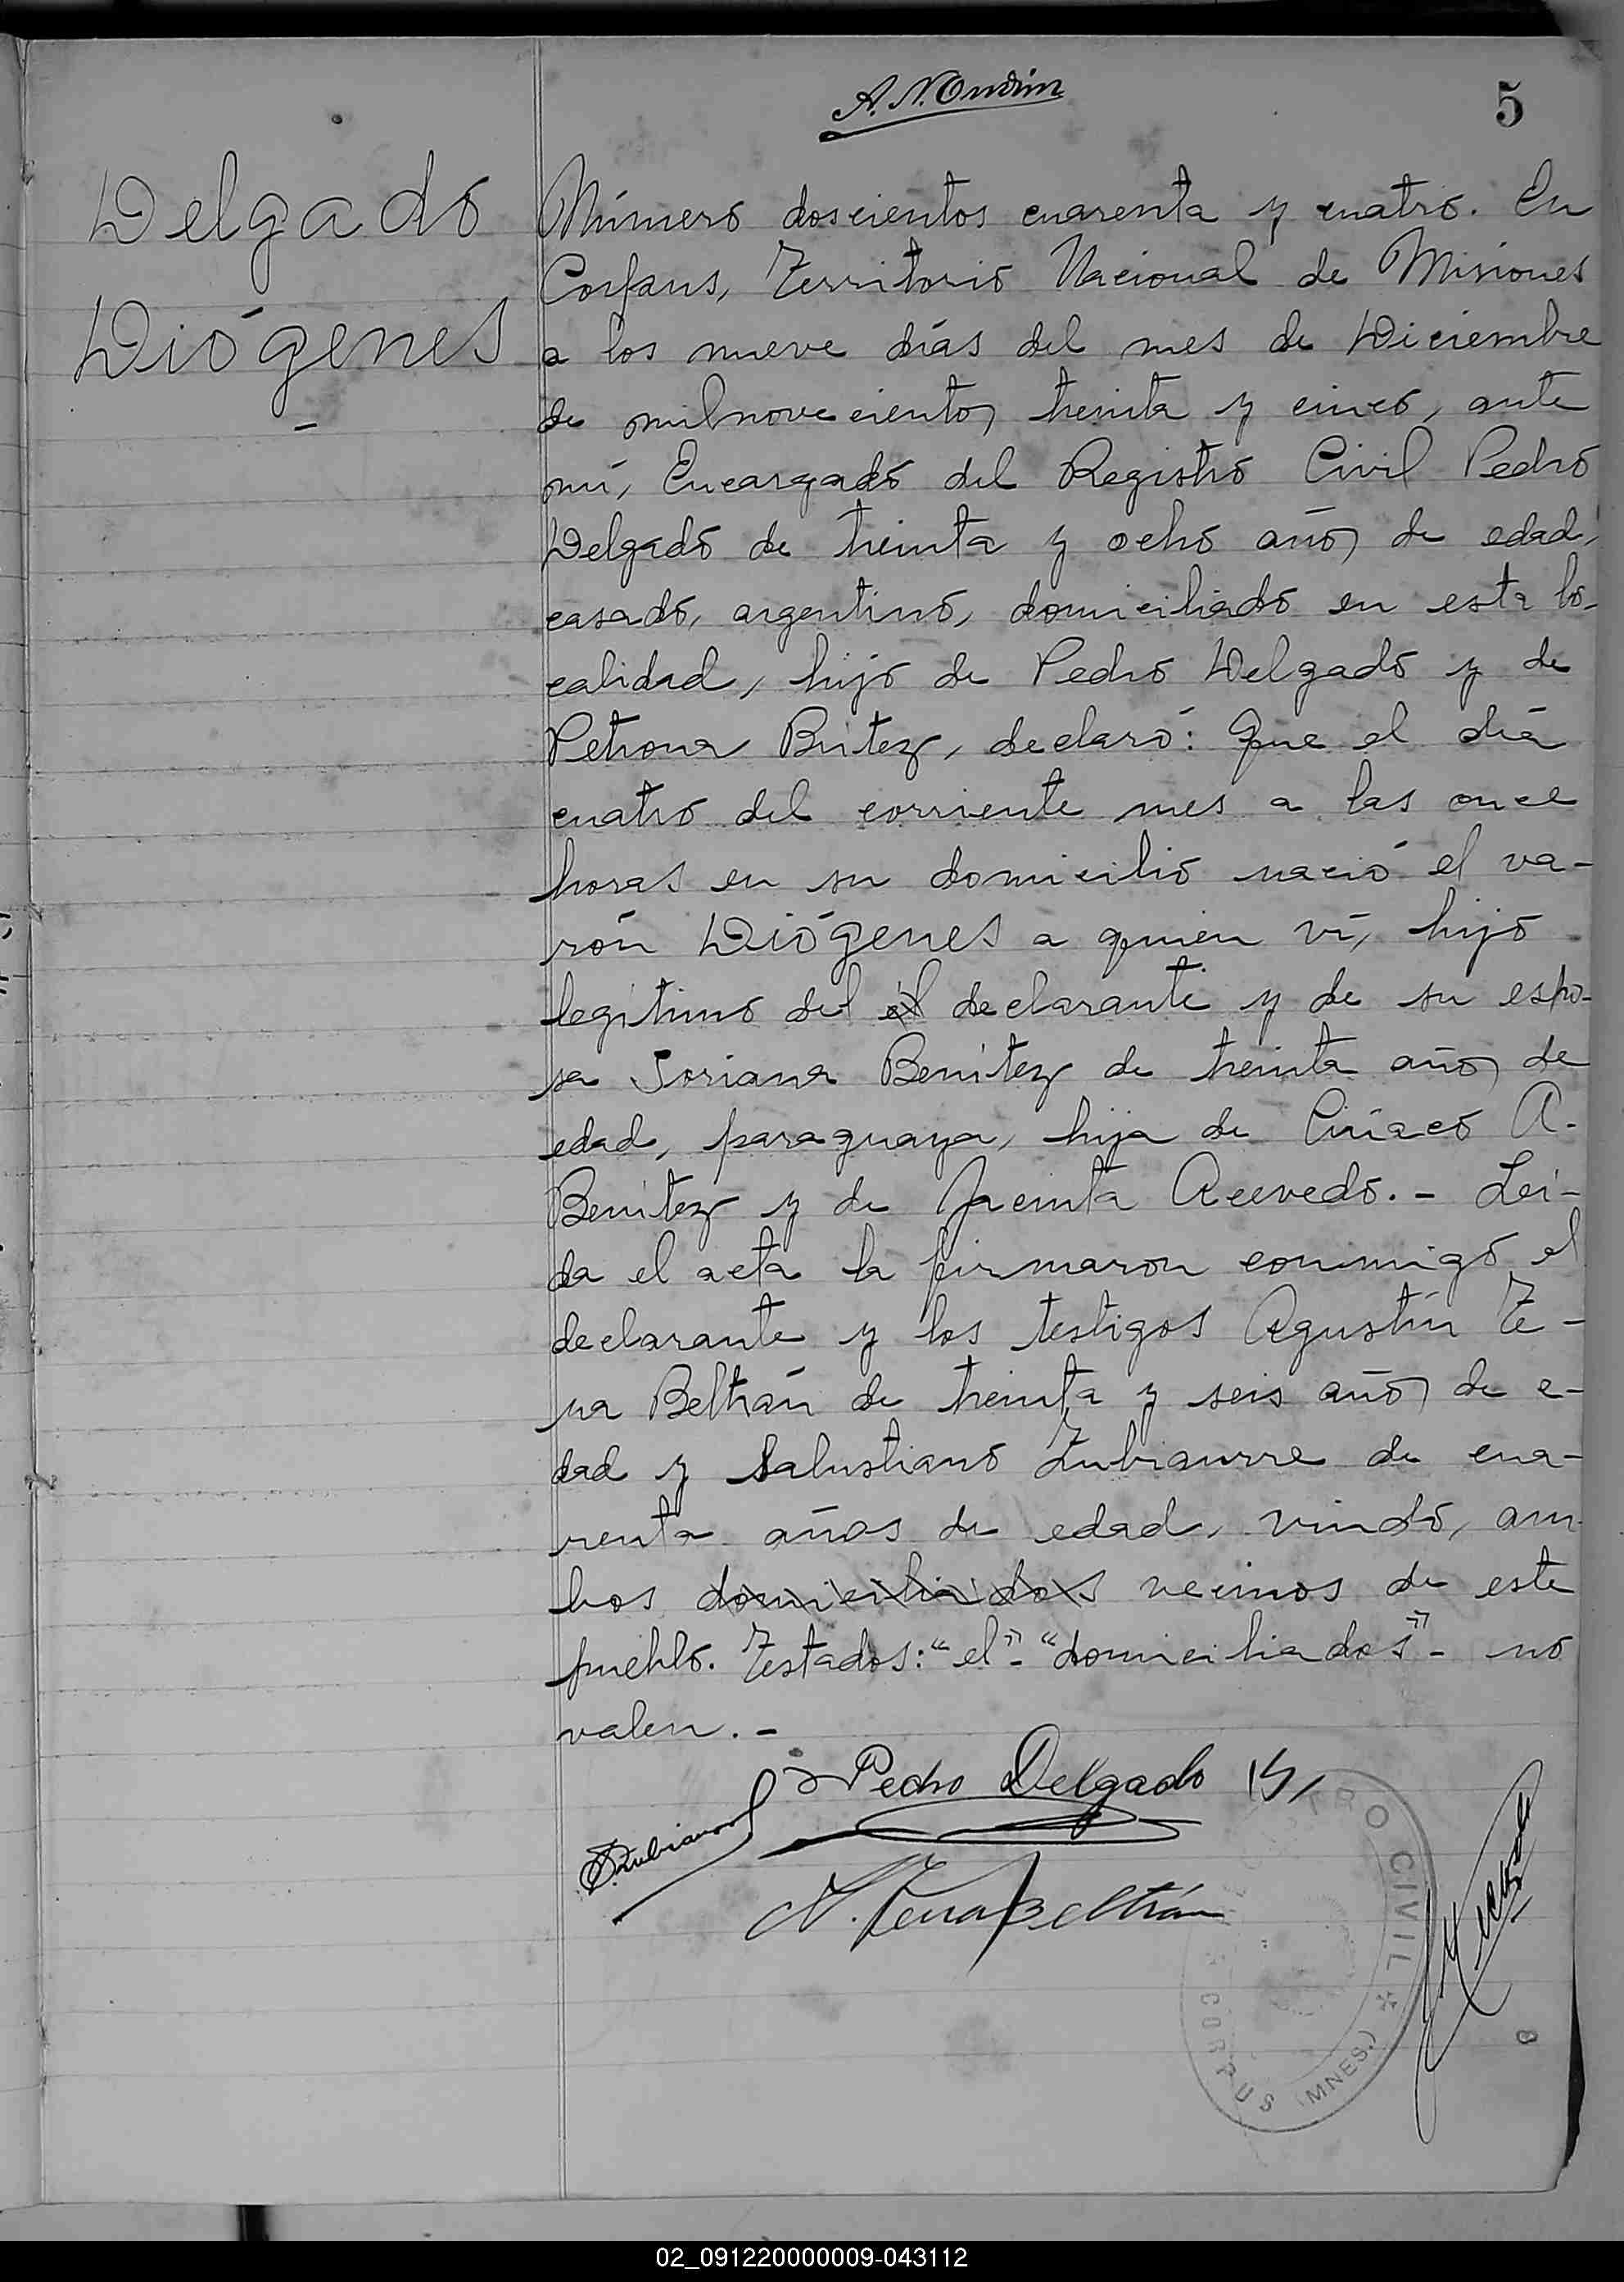 5
Delgado
Diógenes
Número doscientos cuarenta y cuatro. En
Corpus, Territorio Nacional de Misiones
a los nueve días del mes de Diciembre
de mil novecientos treinta y cinco, ante
mí, Encargado del Registro Civil Pedro
Delgado de treinta y ocho años de edad,
casado, argentino, domiciliado en esta lo-
calidad, hijo de Pedro Delgado y de
Petrona Britez, declaró: Que el día
cuatro del corriente mes a las once
horas en su domicilio nació el va-
rón Diógenes a quien ví, hijo
legítimo del el declarante y de su espo-
sa Soriana Benítez de treinta años de
edad, paraguaya, hija de Ciriaco A.
Benítez y de Jacinta Acevedo.- Leí-
da el acta la firmaron conmigo el
declarante y los testigos Agustín Te-
na Beltrán de treinta y seis años de e-
dad y Salustiano Zubiaurre de cua-
renta años de edad, viudo, am-
bos domiciliados vecinos de este
pueblo. Testados: "el"- "domiciliados"- no
valen.-
Pedro Delgado
Tena Beltrán
TRO CIVIL
CORPUS (MNES.)
8
02_091220000009-043112